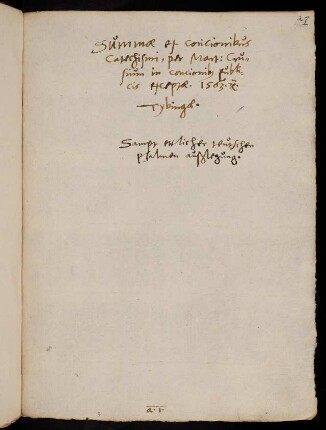 21
Summæ ex concionibus
Catechismi, per Mart: Cru-
sium in concionib. publi-
cis exceptæ. 1563.
Tybingæ.
Sampt etlicher teutschen
psalmen außlegung.
a. 1.